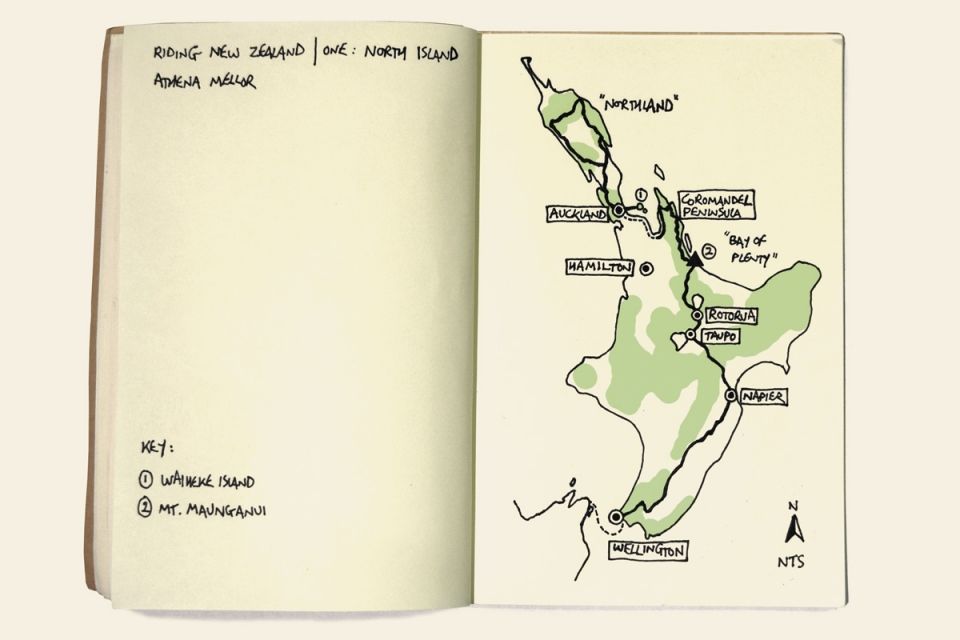 RIDING NEW ZEALAND | ONE: NORTH ISLAND
ATHENA MELLOR
KEY:
① WAIHEKE ISLAND
② MT. MAUNGANUI
"NORTHLAND"
①
AUCKLAND
COROMANDEL
PENINSULA
②
"BAY OF
PLENTY"
HAMILTON
ROTORUA
TAUPO
NAPIER
WELLINGTON
N
NTS